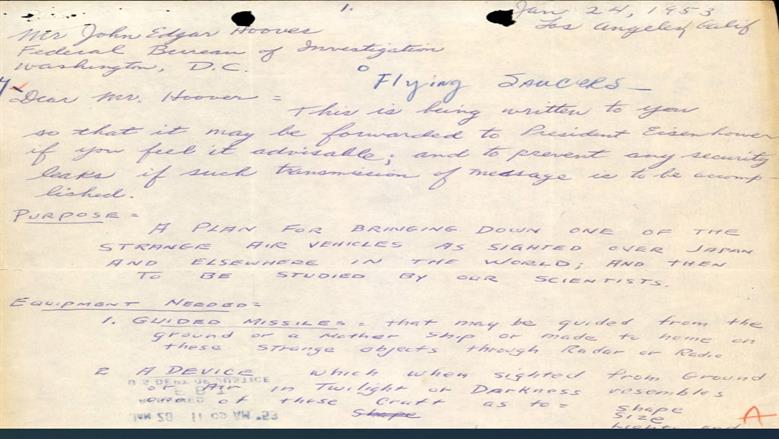 1.
Jan 24, 1953
Los Angeles, Calif
Mr John Edgar Hoover
Federal Bureau of Investigation
Washington, D.C.
Flying SAUCERS -
Dear Mr. Hoover =
This is being written to you
so that it may be forwarded to President Eisenhower
if you feel it advisable; and to prevent any security
leaks if such transmission of message is to be accomp-
lished.
PURPOSE =
A PLAN FOR BRINGING DOWN ONE OF THE
STRANGE AIR VEHICLES AS SIGHTED OVER JAPAN
AND ELSEWHERE IN THE WORLD; AND THEN
TO BE STUDIED BY OUR SCIENTISTS.
EQUIPMENT NEEDED =
1. GUIDED MISSILES = that may be guided from the
ground or a Mother Ship or made to home on
these strange objects through Radar or Radio
2 A DEVICE which when sighted from Ground
or Air in Twilight or Darkness resembles
of these Craft as to = shape
size
U S DEPT OF JUSTICE
F B I
JAN 28 11 09 AM '53
A